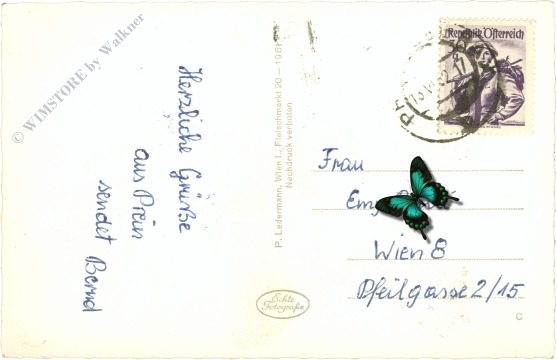 © WIMSTORE by Walkner
Herzliche Grüße
aus Prein
sendet Bernd
P. Ledermann, Wien I., Fleischmarkt 20 – 1951
Nachdruck verboten
Echte
Fotografie
Republik Österreich
Frau
Wien 8
Pfeilgasse 2/15